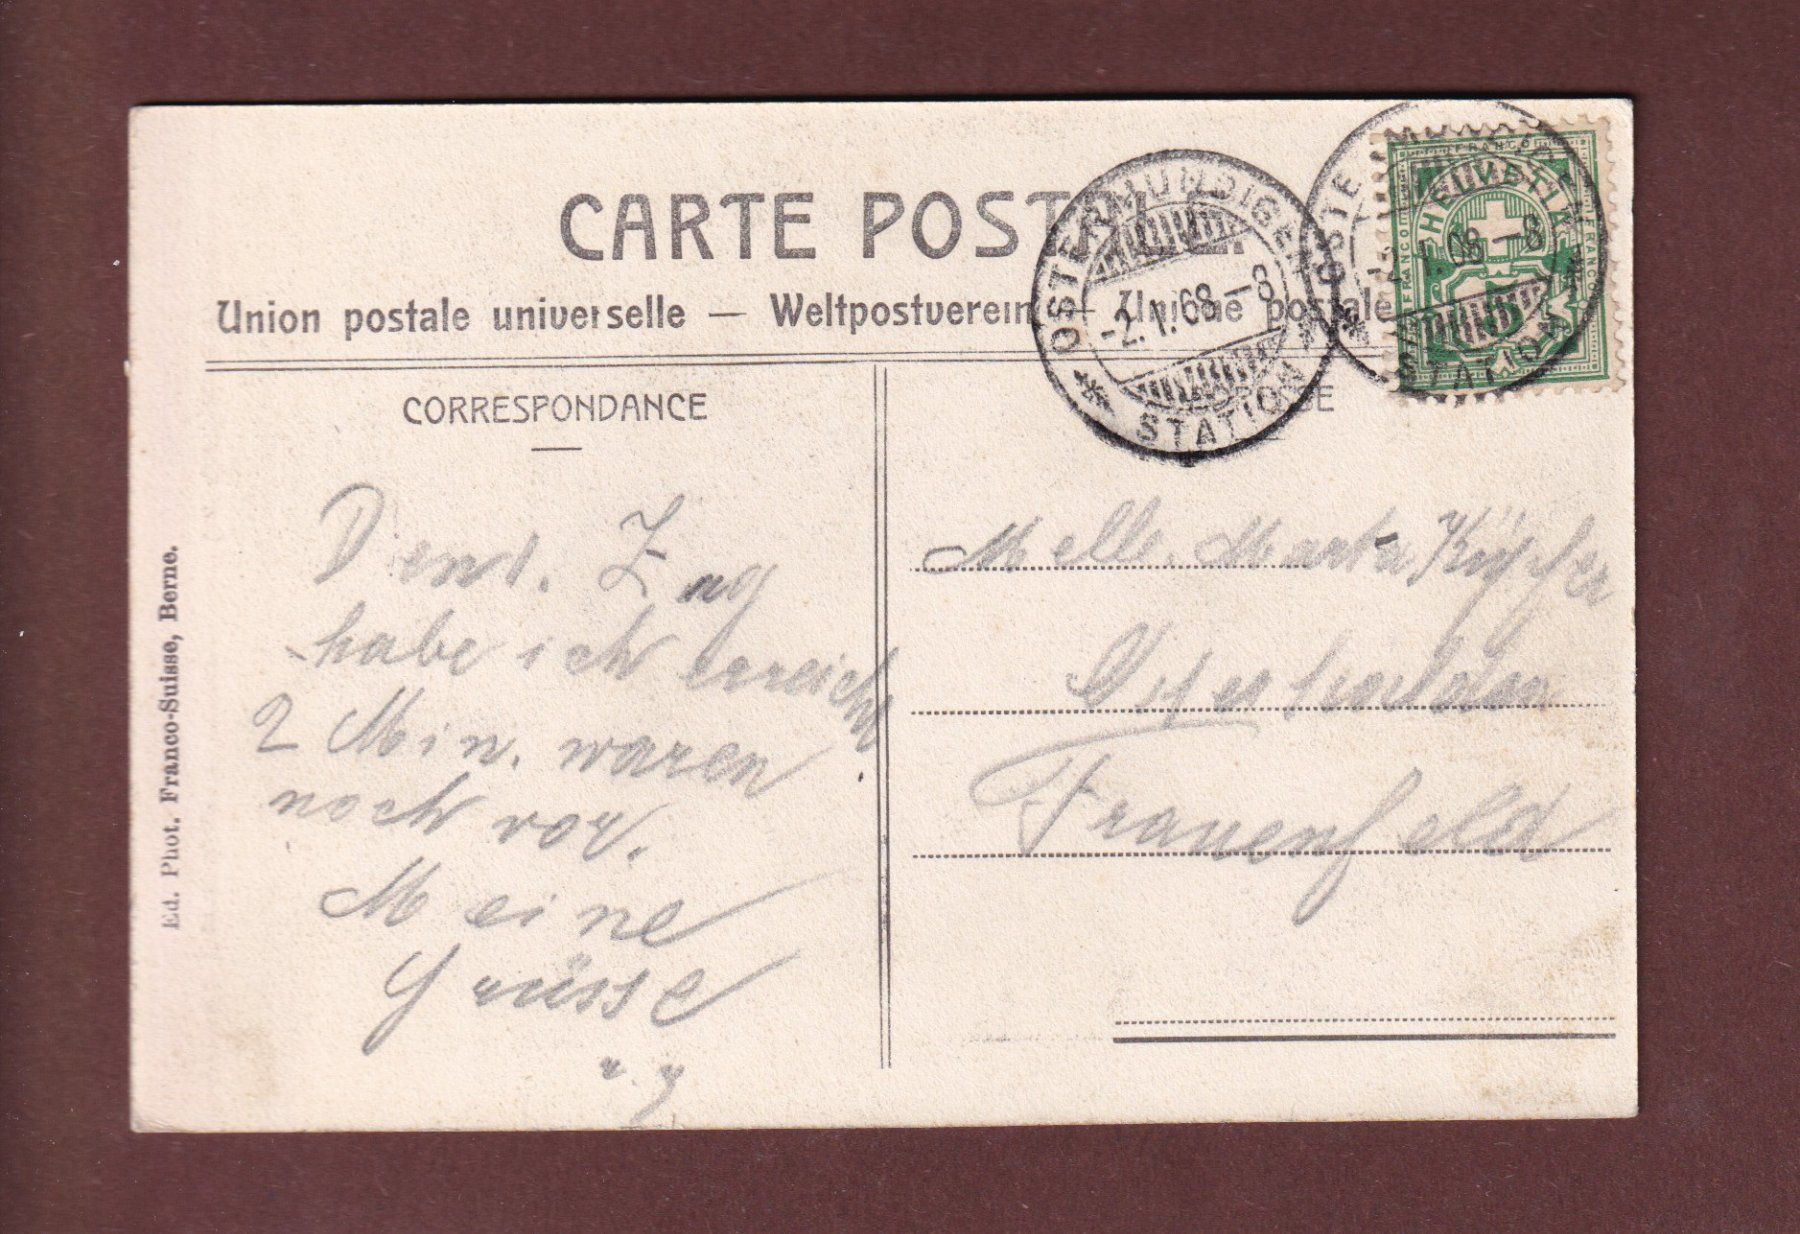 CARTE POSTALE.
Union postale universelle — Weltpostverein — Unione postale
OSTERMUNDIGEN
-2.I.08-8
STATION
OSTE
-2.I.08-8
STATION
FRANCO
HELVETIA
FRANCO
FRANCO
CORRESPONDANCE
Den Zug
habe ich erreicht
2 Min. waren
noch vor.
Meine
Grüsse
Melle. Marta Küpfer
Frauenfeld
Ed. Phot. Franco-Suisse, Berne.